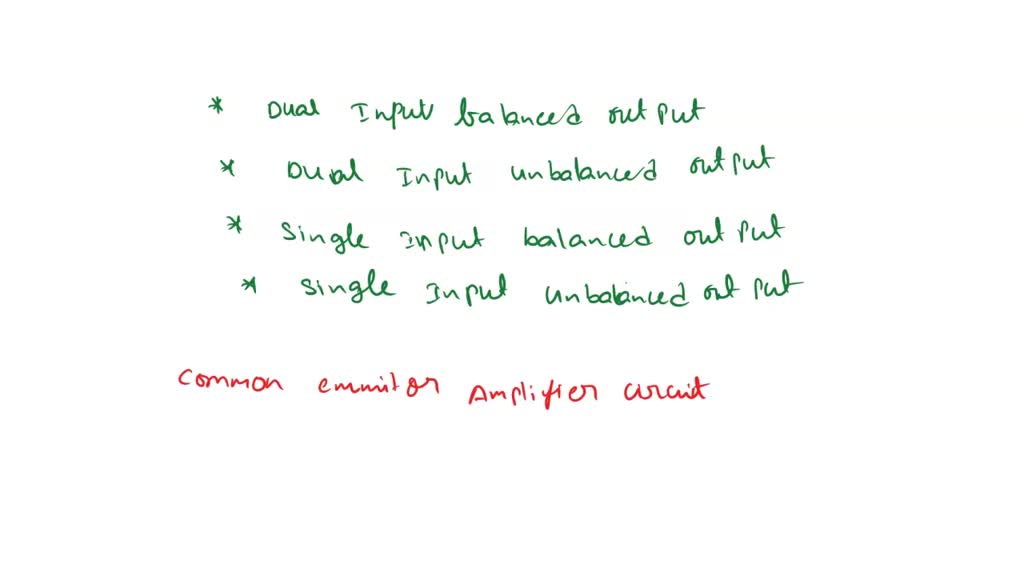 * Dual Input balanced output
* Dual Input unbalanced output
* Single Input balanced output
* Single Input unbalanced output
Common emmitor Amplifier circuit